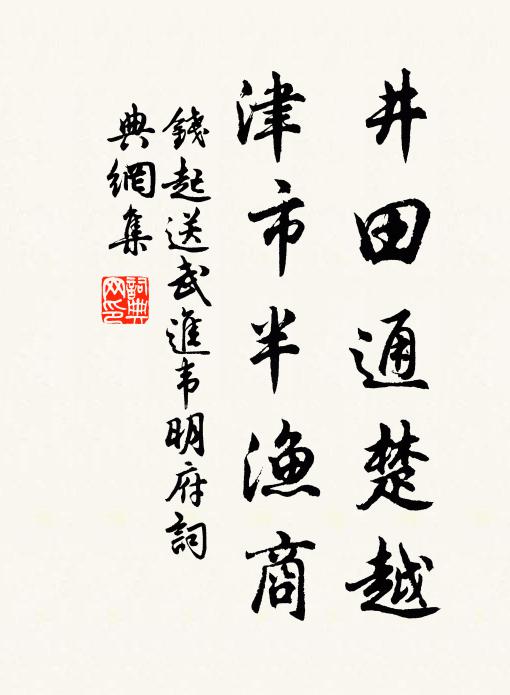 井田通楚越
津市半漁商
錢起送武進韦明府詞
典網集
詞典网印